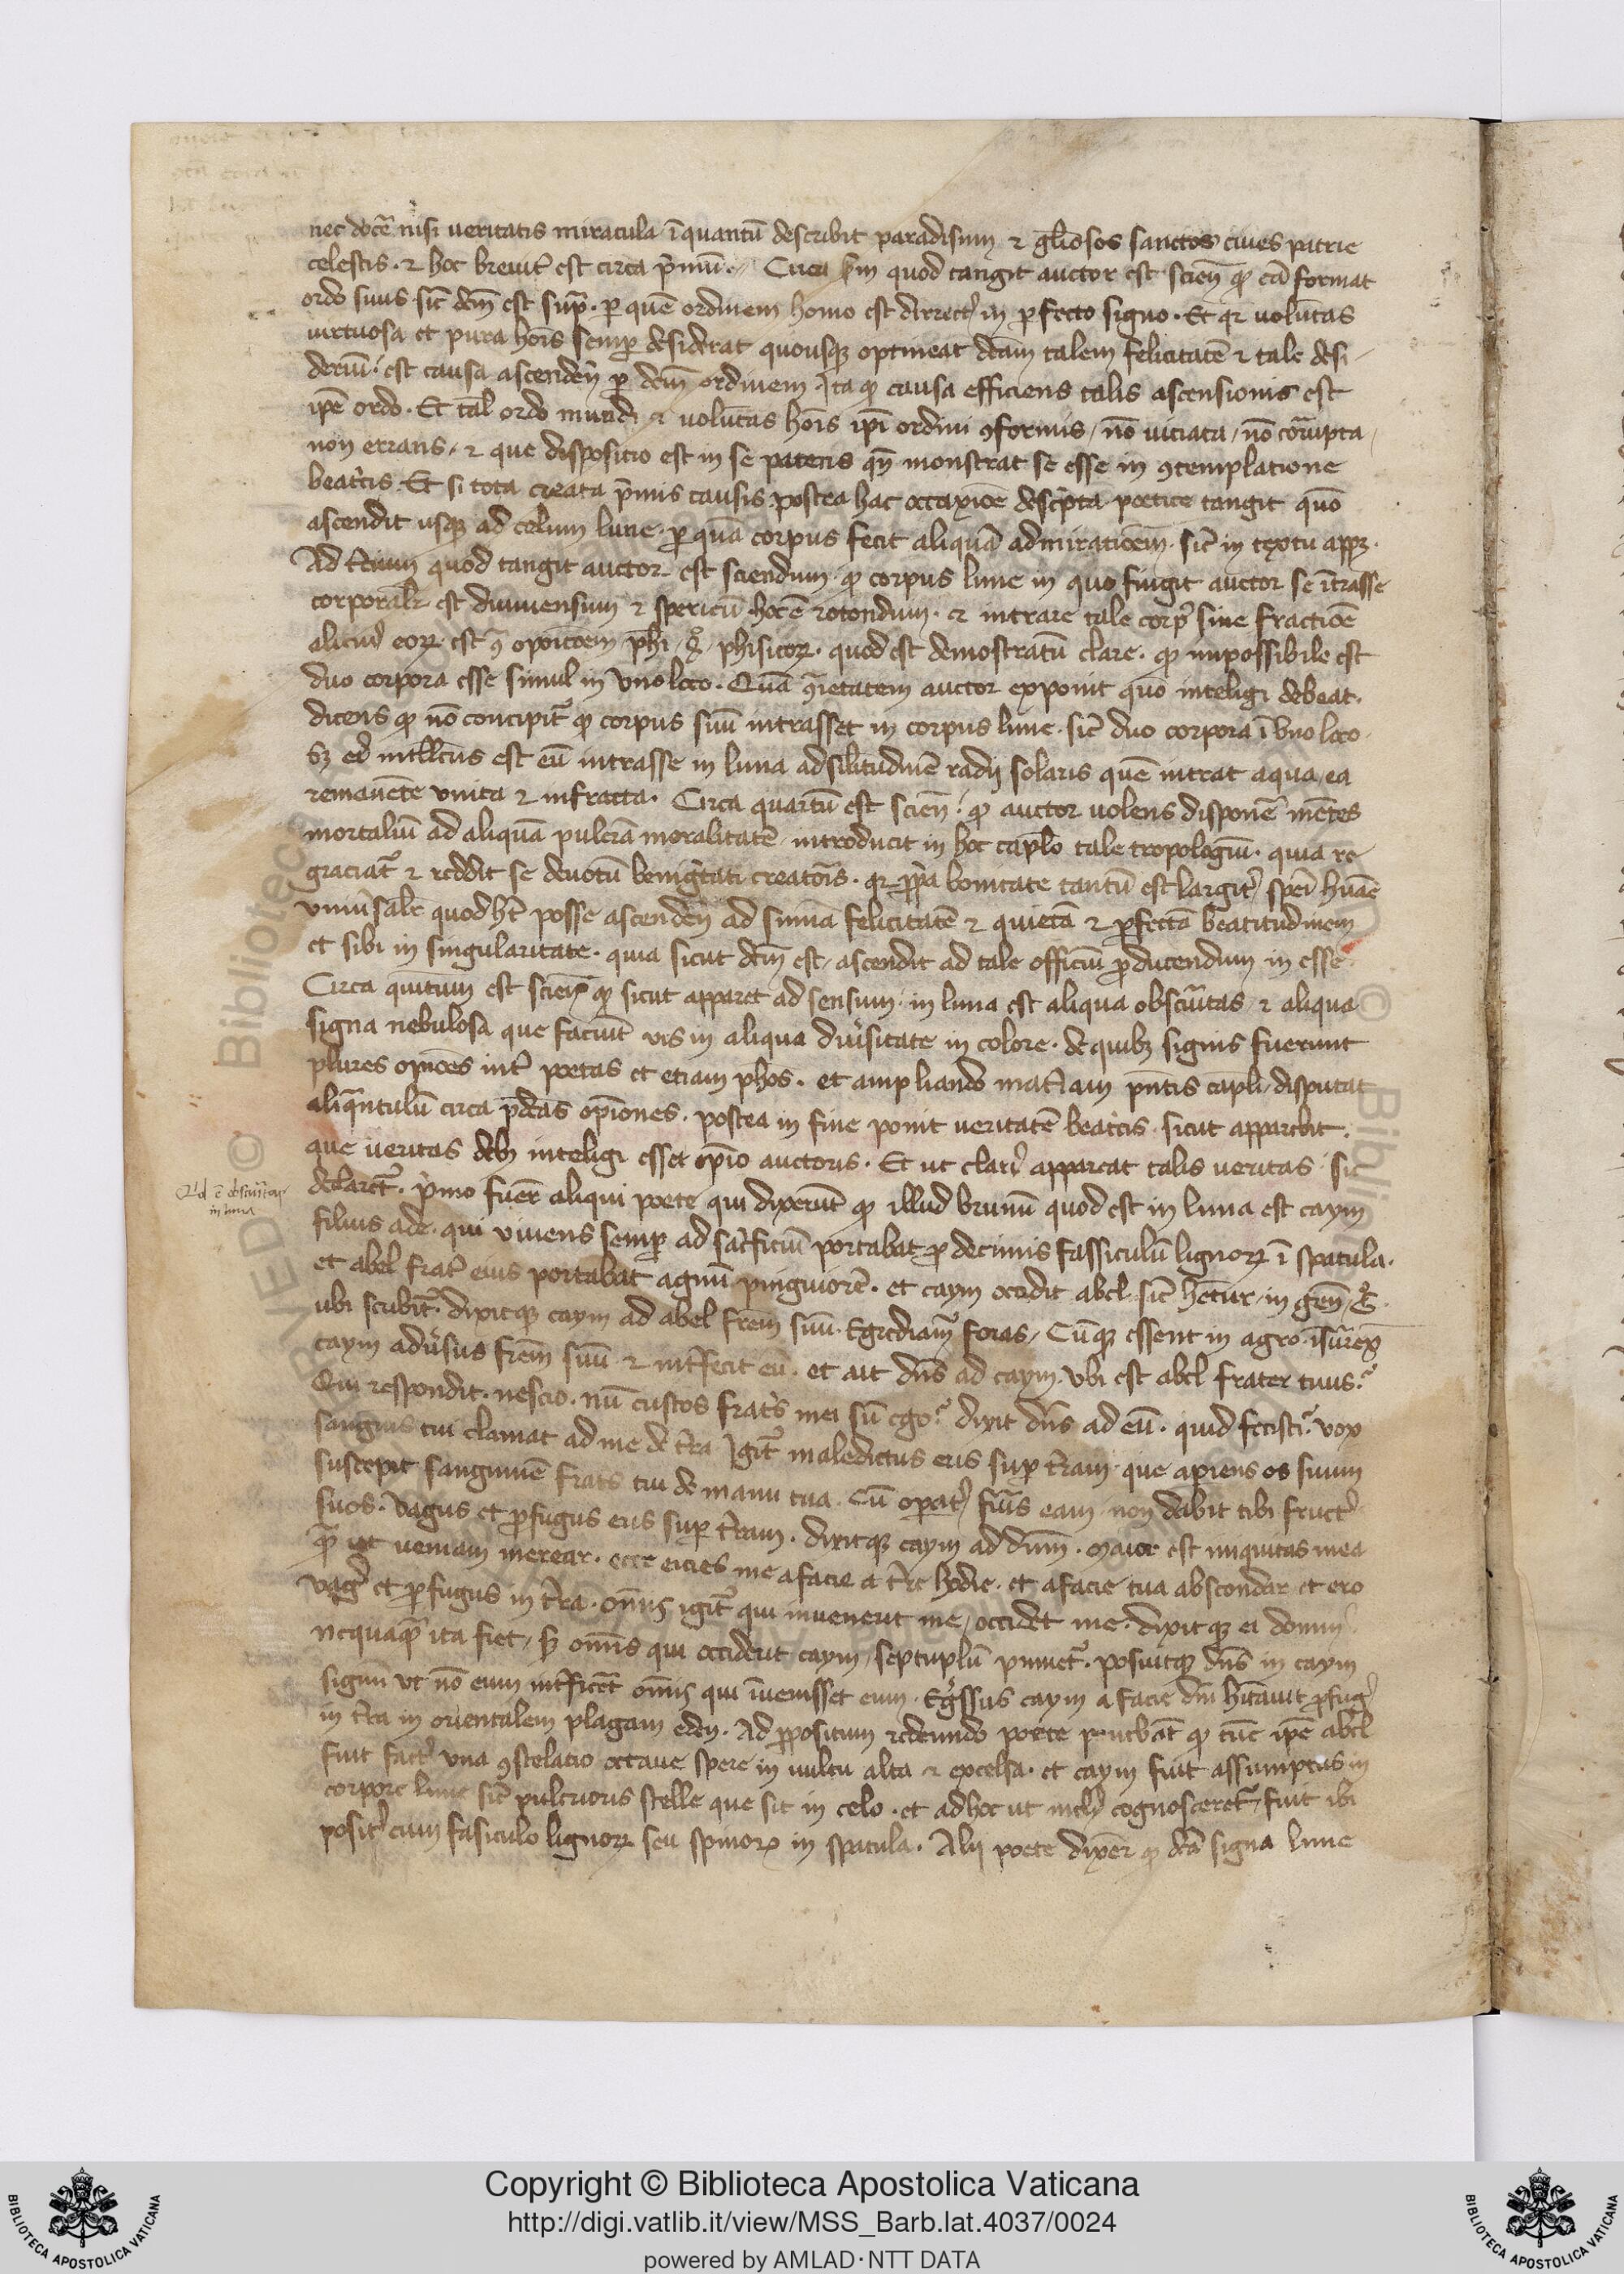 nec docẽ nisi ueritatis miracula ĩquantũ describit paradisum ⁊ gl̃iosos sanctos ciues patrie
celestis · ⁊ hoc breuit̃ est circa p̃mũ · Circa s̃m quod tangit auctor est scien̄ ꝙ eũ format
ordo suus sic̃ dc̃m est sup̃ · ꝑ quẽ ordinem homo est dirrectꝰ in ꝑfecto signo · Et qr uolũtas
uirtuosa et pura hoĩs semꝑ desiderat quousqꝫ optineat dc̃am talem felicitatẽ ⁊ tale desi-
deriũ · est causa ascendẽdi ꝑ dc̃m ordinem Ita ꝙ causa efficiens talis ascensionis est
ip̃e ordo · Et tal̃ ordo mundi ⁊ uolũtas hoĩs ip̃i ordini ꝯformis / nõ uiciata / nõ corrupta /
non errans / ⁊ que dispositio est in se patens qñ monstrat se esse in ꝯtemplatione
beat̃cis · Et si tota creata p̃mis causis · postea hac occaxiõe desc̃pta poetice tangit quõ
ascendit usqꝫ ad celum lune · ꝑ quã corpus fecit aliquã admiratiõem · sic̃ in textu appꝫ ·
Ad t̃cium quod tangit auctor est sciendum · ꝙ corpus lune in quo fingit auctor se ĩtrasse
corporalr̃ est dimensum ⁊ spericũ · hoc ẽ rotondum · ⁊ intrare tale corpꝰ sine fractiõe
alicuiꝰ eorꝫ est ꝯ̃ opoĩtõem ph̃i phisicorꝫ · quod est demostratũ clare · ꝙ impossibile est
duo corpora esse simul in vno loco · Quã ꝯ̃rietatem auctor exponit quõ inteligi debeat ·
dicens ꝙ nõ concipit̃ ꝙ corpus suũ intrasset in corpus lune · sic̃ duo corpora ĩ vno loco ·
sꝫ eiꝰ intllc̃us est eũ intrasse in luna ad silitudinẽ radij solaris quẽ intrat aqua / ea
remanẽte vnita ⁊ infracta · Circa quartũ est scien̄ · ꝙ auctor uolens disponẽ mẽtes
mortaliũ ad aliquã pulcrã moralitatẽ / introducit in hoc cap̃lo tale tropologiũ · quia re-
graciat̃ ⁊ reddit se deuotũ benig̃tati creatoris · qr p̃p̃a bonitate tantũ est largitꝰ sp̃ei hũane
vniũsalr̃ quod hẽt posse ascendẽdi ad sũmã felicitatẽ ⁊ quietã ⁊ ꝑfectã beatitudinem
et sibi in singularitate · quia sicut dc̃m est / ascendit ad tale officiũ ꝓducendum in esse
Circa quintum est scien̄ ꝙ sicut apparet ad sensum · in luna est aliqua obscuritas / ⁊ aliqua
signa nebulosa que faciũt vis in aliqua diũsitate in colore · de quibꝫ signis fuerunt
plures opin̄oes int̃ poetas et etiam ph̃os · et ampliando mat̃iam pñtis cap̃li / disputat
aliq̃ntulũ circa p̃dc̃as opiniones · postea in fine ponit ueritatẽ beat̃cis sicut apparebit ·
que ueritas debꝫ inteligi esset opĩo auctoris · Et ut clariꝰ appareat talis ueritas · sic
declaret̃ · p̃mo fuer̃ aliqui poete qui dixerũt ꝙ illud brunũ quod est in luna est caym
filius ade · qui viuens semꝑ ad sac̃ficiũ portabat ꝓ decimis fassiculũ lignorꝫ ĩ spatula ·
et abel frat̃ eius portabat agnũ pinguiorẽ · et caym occidit abel · sic̃ hẽtur / in gen̄ /
ubi scribit̃ · dixitqꝫ caym ad abel fr̃em suũ · Egrediam̃ foras / Cũqꝫ essent in agro · ĩsurex̃
caym adũsus fr̃em suũ ⁊ int̃fecit eũ · et ait dñs ad caym · Vbi est abel frater tuus ·?
Qui respondit · nescio · nũ custos frat̃s mei sũ ego ? dixit dñs ad eũ · quid fecisti ? vox
sanguis tui clamat ad me de t̃ra Igit̃ maledictus eris suꝑ t̃ram · que apiens os suum
suscepit sanguinẽ frat̃s tui de manu tua · Cũ opatꝰ fũis eam non dabit tibi fructꝰ
suos · Vagus et ꝓfugus eris suꝑ t̃ram · dixitqꝫ caym ad dñm · Maior est iniquitas mea
q̃ ut ueniam merear · ecce eicies me a facie a t̃re hodie · et a facie tua abscondar et ero
vagꝰ et ꝓfugus in t̃ra · om̃is igit̃ qui inuenerit me / occidet me · dixitqꝫ ei dominꝰ
nequaq̃ ita fiet / sꝫ om̃is qui occiderit caym / septuplũ puniet̃ · posuitqꝫ dñs in caym
signũ vt nõ eum int̃ficet̃ om̃is qui ĩuenisset eum · Eg̃ssus caym a facie dñi hitauit ꝓfugꝰ
in t̃ra in orientalem plagam eden · Ad ꝓpositum redeundo poete ponebãt ꝙ tũc ip̃e abel
fuit factꝰ vna ꝯstelatio octaue spere in uultu alta ⁊ excelsa · et caym fuit assumptus in
corpore lune sic̃ pulcrioris stelle que sit in celo · et ad hoc ut meliꝰ cognosceret̃ / fuit ibi
positꝰ cum fasiculo lignorꝫ seu spinorꝫ in spatula · Alij poete dixer̃ ꝙ dc̃a signa lune
in luna
Copyright © Biblioteca Apostolica Vaticana
http://digi.vatlib.it/view/MSS_Barb.lat.4037/0024
powered by AMLAD·NTT DATA
BIBLIOTECA APOSTOLICA VATICANA
BIBLIOTECA APOSTOLICA VATICANA